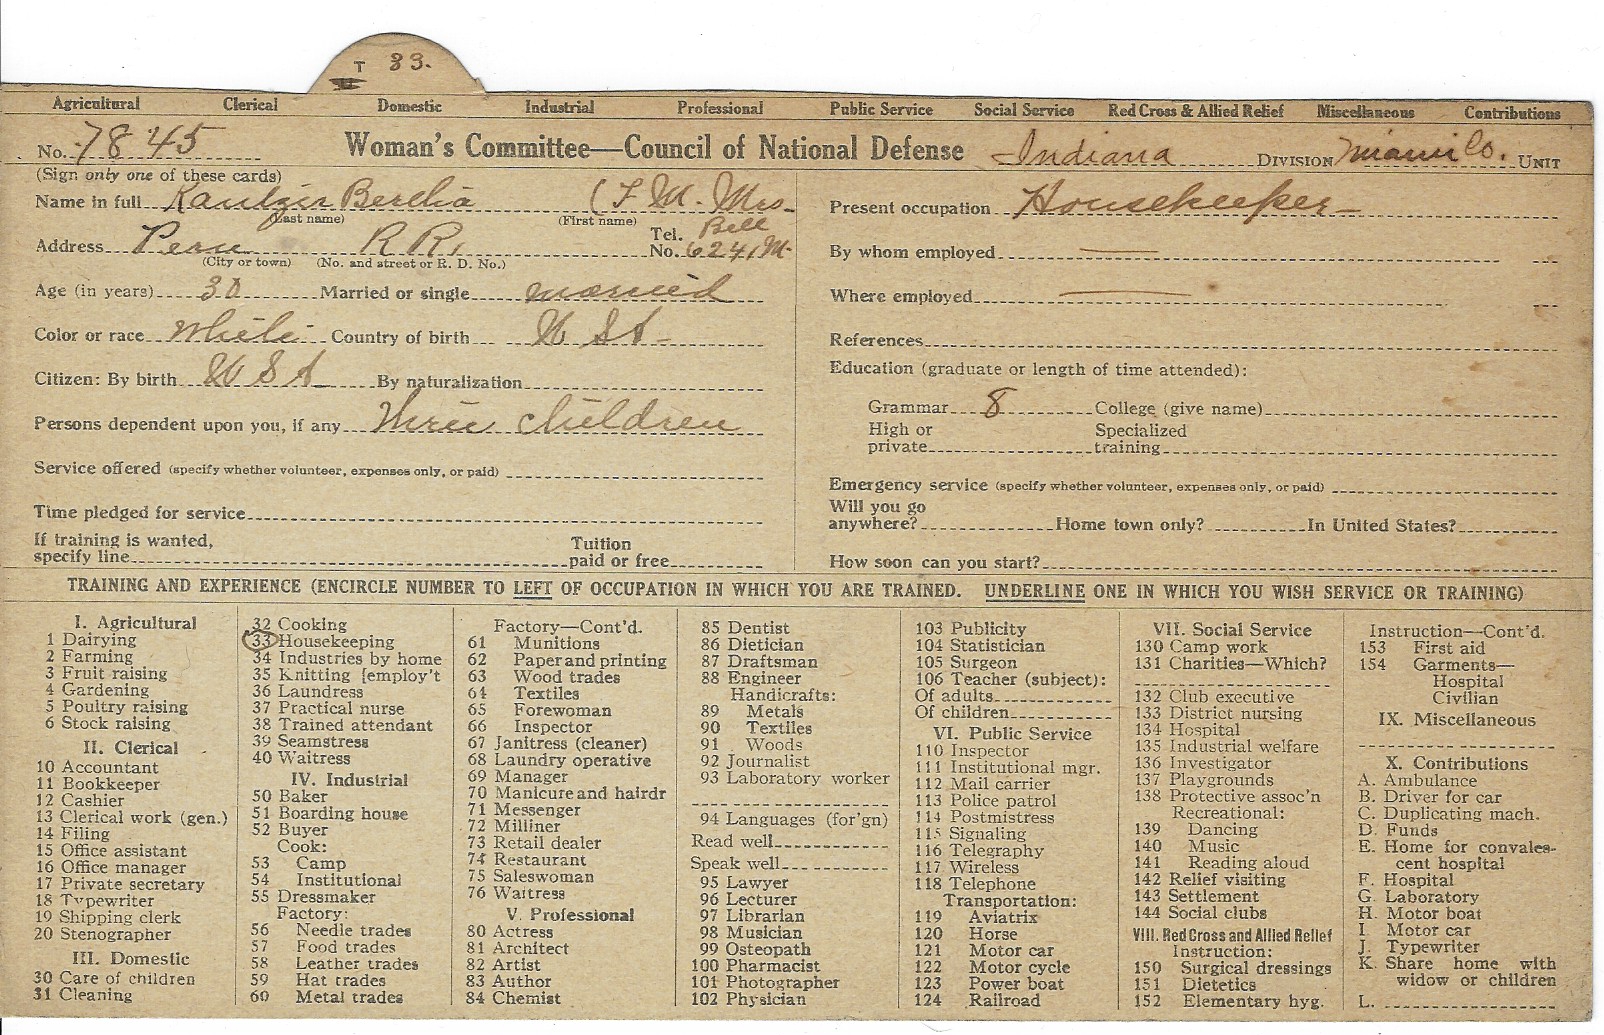 T 33.
Agricultural Clerical Domestic Industrial Professional Public Service Social Service Red Cross & Allied Relief Miscellaneous Contributions
No. 7845 Woman's Committee—Council of National Defense Indiana DIVISION Miami Co. UNIT
(Sign only one of these cards)
Name in full Bertha (F M. Mrs
(Last name) (First name)
Address Peru R R. Tel. No. Bell 6241 M.
(City or town) (No. and street or R. D. No.)
Age (in years) 30 Married or single married
Color or race White Country of birth U S A
Citizen: By birth U S A By naturalization
Persons dependent upon you, if any three children
Service offered (specify whether volunteer, expenses only, or paid)
Time pledged for service
If training is wanted,
specify line Tuition paid or free
Present occupation Housekeeper
By whom employed
Where employed
References
Education (graduate or length of time attended):
Grammar 8 College (give name)
High or private Specialized training
Emergency service (specify whether volunteer, expenses only, or paid)
Will you go
anywhere? Home town only? In United States?
How soon can you start?
TRAINING AND EXPERIENCE (ENCIRCLE NUMBER TO LEFT OF OCCUPATION IN WHICH YOU ARE TRAINED. UNDERLINE ONE IN WHICH YOU WISH SERVICE OR TRAINING)
I. Agricultural
1 Dairying
2 Farming
3 Fruit raising
4 Gardening
5 Poultry raising
6 Stock raising
II. Clerical
10 Accountant
11 Bookkeeper
12 Cashier
13 Clerical work (gen.)
14 Filing
15 Office assistant
16 Office manager
17 Private secretary
18 Typewriter
19 Shipping clerk
20 Stenographer
III. Domestic
30 Care of children
31 Cleaning
32 Cooking
33 Housekeeping
34 Industries by home
35 Knitting [employ't
36 Laundress
37 Practical nurse
38 Trained attendant
39 Seamstress
40 Waitress
IV. Industrial
50 Baker
51 Boarding house
52 Buyer
Cook:
53 Camp
54 Institutional
55 Dressmaker
Factory:
56 Needle trades
57 Food trades
58 Leather trades
59 Hat trades
60 Metal trades
Factory—Cont'd.
61 Munitions
62 Paper and printing
63 Wood trades
64 Textiles
65 Forewoman
66 Inspector
67 Janitress (cleaner)
68 Laundry operative
69 Manager
70 Manicure and hairdr
71 Messenger
72 Milliner
73 Retail dealer
74 Restaurant
75 Saleswoman
76 Waitress
V. Professional
80 Actress
81 Architect
82 Artist
83 Author
84 Chemist
85 Dentist
86 Dietician
87 Draftsman
88 Engineer
Handicrafts:
89 Metals
90 Textiles
91 Woods
92 Journalist
93 Laboratory worker
94 Languages (for'gn)
Read well
Speak well
95 Lawyer
96 Lecturer
97 Librarian
98 Musician
99 Osteopath
100 Pharmacist
101 Photographer
102 Physician
103 Publicity
104 Statistician
105 Surgeon
106 Teacher (subject):
Of adults
Of children
VI. Public Service
110 Inspector
111 Institutional mgr.
112 Mail carrier
113 Police patrol
114 Postmistress
115 Signaling
116 Telegraphy
117 Wireless
118 Telephone
Transportation:
119 Aviatrix
120 Horse
121 Motor car
122 Motor cycle
123 Power boat
124 Railroad
VII. Social Service
130 Camp work
131 Charities—Which?
132 Club executive
133 District nursing
134 Hospital
135 Industrial welfare
136 Investigator
137 Playgrounds
138 Protective assoc'n
Recreational:
139 Dancing
140 Music
141 Reading aloud
142 Relief visiting
143 Settlement
144 Social clubs
VIII. Red Cross and Allied Relief
Instruction:
150 Surgical dressings
151 Dietetics
152 Elementary hyg.
Instruction—Cont'd.
153 First aid
154 Garments—
Hospital
Civilian
IX. Miscellaneous
X. Contributions
A. Ambulance
B. Driver for car
C. Duplicating mach.
D. Funds
E. Home for convales-
cent hospital
F. Hospital
G. Laboratory
H. Motor boat
I. Motor car
J. Typewriter
K. Share home with
widow or children
L.